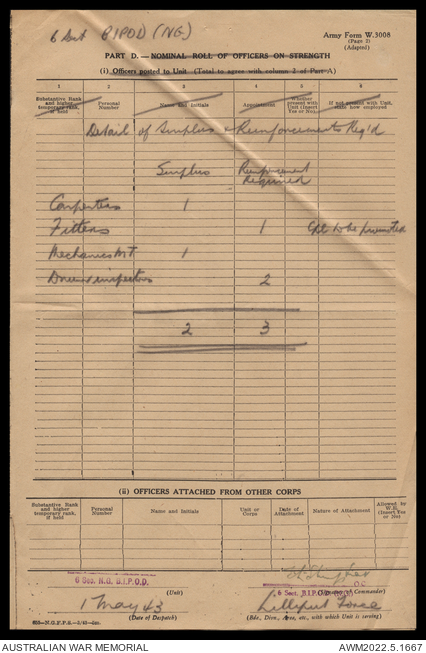 6 Sect BIPOD (NG)
Army Form W.3008
(Page 2)
(Adapted)
PART D.—NOMINAL ROLL OF OFFICERS ON STRENGTH
(i) Officers posted to Unit (Total to agree with column 2 of Part A)
1 2 3 4 5 6
Substantive Rank and higher temporary rank, if held Personal Number Name and Initials Appointment Whether present with Unit (Insert Yes or No) If not present with Unit, state how employed
Detail of Surplus & Reinforcements Req'd
Surplus Reinforcement Required
Carpenters 1
Fitters 1 Cpl to be promoted
Mechanics MT 1
inspectors 2
2 3
(ii) OFFICERS ATTACHED FROM OTHER CORPS
Substantive Rank and higher temporary rank, if held Personal Number Name and Initials Unit or Corps Date of Attachment Nature of Attachment Allowed by W.E. (Insert Yes or No)
6 Sec. N.G. B.I.P.O.D.
(Unit)
OC
6 Sect. B.I.P.O.D.
(Signature of Commander)
1 May 43
(Date of Despatch)
Lilliput Force
(Bde., Divn., Area, etc., with which Unit is serving)
AUSTRALIAN WAR MEMORIAL
AWM2022.5.1667